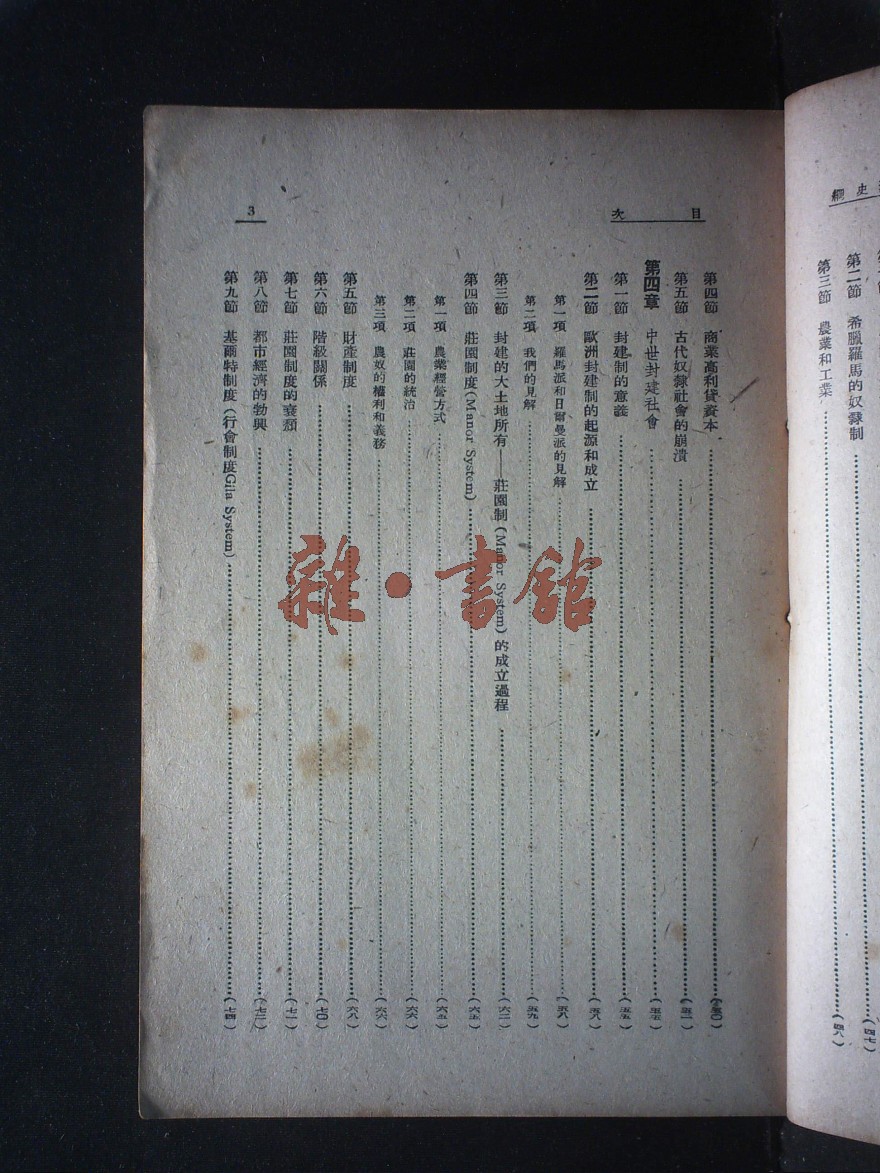 史綱
第二節 希臘羅馬的奴隸制 (四七)
第三節 農業和工業 (四八)
目次
3
第四節 商業高利貸資本 (五〇)
第五節 古代奴隸社會的崩潰 (五一)
第四章 中世封建社會 (五五)
第一節 封建制的意義 (五五)
第二節 歐洲封建制的起源和成立 (五八)
第一項 羅馬派和日爾曼派的見解 (五八)
第二項 我們的見解 (五九)
第三節 封建的大土地所有——莊園制(Manor System)的成立過程 (六二)
第四節 莊園制度(Manor System) (六五)
第一項 農業經營方式 (六五)
第二項 莊園的統治 (六六)
第三項 農奴的權利和義務 (六六)
第五節 財產制度 (六八)
第六節 階級關係 (七〇)
第七節 莊園制度的衰頹 (七一)
第八節 都市經濟的勃興 (七二)
第九節 基爾特制度(行會制度Gila System) (七四)
雜·書館